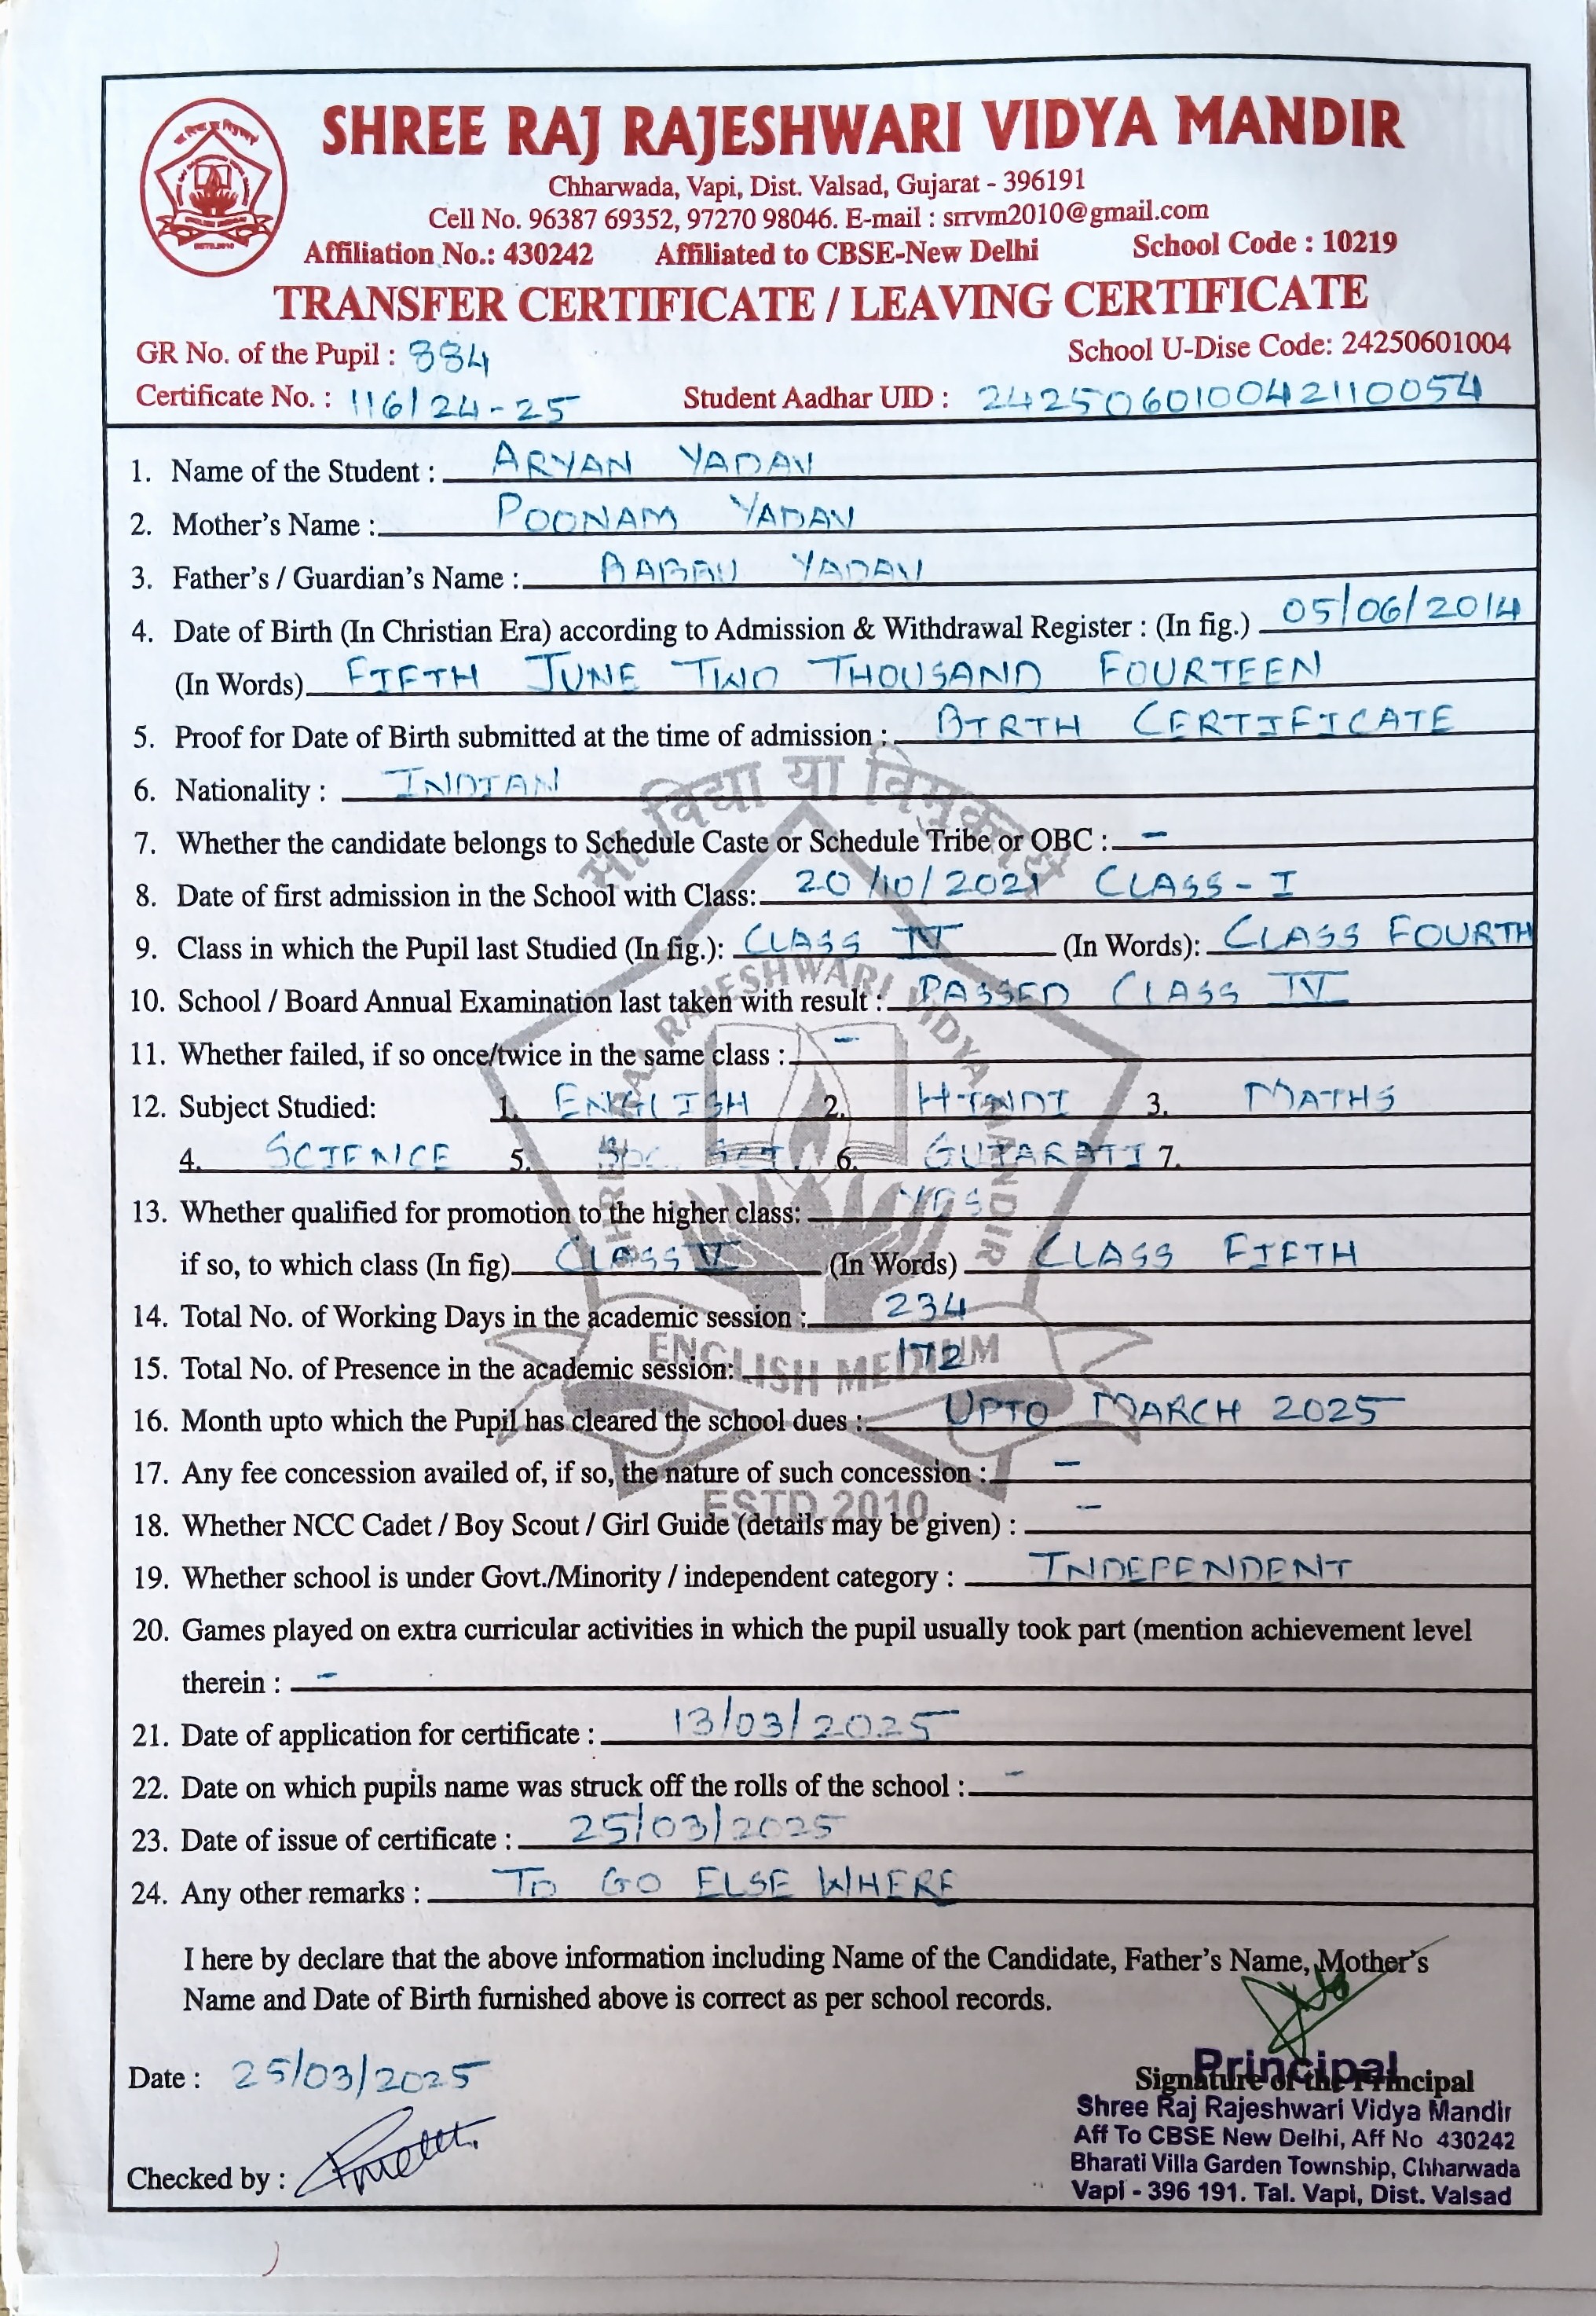 SHREE RAJ RAJESHWARI VIDYA MANDIR
Chharwada, Vapi, Dist. Valsad, Gujarat - 396191
Cell No. 96387 69352, 97270 98046. E-mail : srrvm2010@gmail.com
Affiliation No.: 430242 Affiliated to CBSE-New Delhi School Code : 10219
TRANSFER CERTIFICATE / LEAVING CERTIFICATE
GR No. of the Pupil : 884 School U-Dise Code: 24250601004
Certificate No. : 116/24-25 Student Aadhar UID : 242506010042110054
1. Name of the Student : ARYAN YADAV
2. Mother's Name : POONAM YADAV
3. Father's / Guardian's Name : YADAV
4. Date of Birth (In Christian Era) according to Admission & Withdrawal Register : (In fig.) 05/06/2014
(In Words) FIFTH JUNE TWO THOUSAND FOURTEEN
5. Proof for Date of Birth submitted at the time of admission : BIRTH CERTIFICATE
6. Nationality : INDIAN
7. Whether the candidate belongs to Schedule Caste or Schedule Tribe or OBC : -
8. Date of first admission in the School with Class: 20/10/2021 CLASS-I
9. Class in which the Pupil last Studied (In fig.): CLASS IV (In Words): CLASS FOURTH
10. School / Board Annual Examination last taken with result : PASSED CLASS IV
11. Whether failed, if so once/twice in the same class : -
12. Subject Studied: 1. ENGLISH 2. HINDI 3. MATHS
4. SCIENCE 5. SOC. SCI. 6. GUJARATI 7.
13. Whether qualified for promotion to the higher class: YES
if so, to which class (In fig) CLASS V (In Words) CLASS FIFTH
14. Total No. of Working Days in the academic session : 234
15. Total No. of Presence in the academic session: 172
16. Month upto which the Pupil has cleared the school dues : UPTO MARCH 2025
17. Any fee concession availed of, if so, the nature of such concession : -
18. Whether NCC Cadet / Boy Scout / Girl Guide (details may be given) : -
19. Whether school is under Govt./Minority / independent category : INDEPENDENT
20. Games played on extra curricular activities in which the pupil usually took part (mention achievement level
therein : -
21. Date of application for certificate : 13/03/2025
22. Date on which pupils name was struck off the rolls of the school : -
23. Date of issue of certificate : 25/03/2025
24. Any other remarks : TO GO ELSE WHERE
मा विद्या या विमुक्तये
SHREE RAJ RAJESHWARI VIDYA MANDIR
ENGLISH MEDIUM
ESTD.2010
I here by declare that the above information including Name of the Candidate, Father's Name, Mother's
Name and Date of Birth furnished above is correct as per school records.
Date : 25/03/2025
Signature of the Principal
Principal
Shree Raj Rajeshwari Vidya Mandir
Aff To CBSE New Delhi, Aff No 430242
Bharati Villa Garden Township, Chharwada
Vapi - 396 191. Tal. Vapi, Dist. Valsad
Checked by :